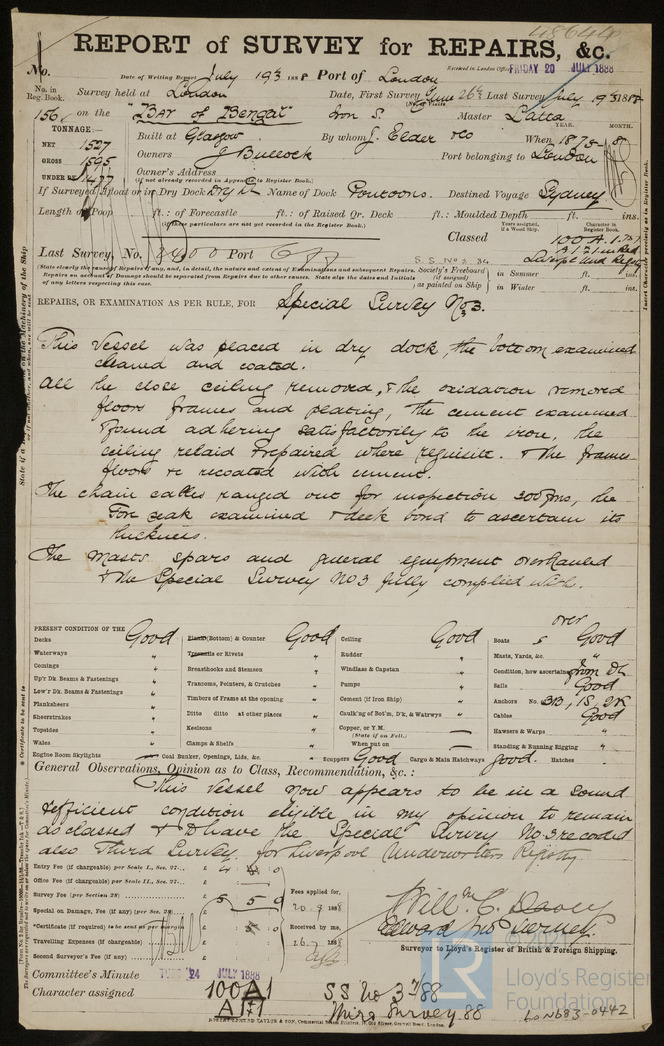 48644
REPORT of SURVEY for REPAIRS, &c.
No.
Date of Writing Report July 19th 1888 Port of London
Received in London Office FRIDAY 20 JULY 1888
No. in Reg. Book.
Survey held at London Date, First Survey June 26th Last Survey July 19th 1888
(No. of Visits)
156 on the "Bay of Bengal" Iron S. Master Latta
TONNAGE:—
YEAR. MONTH.
NET 1527
Built at Glasgow By whom J. Elder & Co When 1875 - 5
GROSS 1595
Owners J Bullock Port belonging to London
UNDER DK 1477
Owner's Address
(if not already recorded in Appendix to Register Book.)
If Surveyed Afloat or in Dry Dock Dry Dk Name of Dock Pontoons. Destined Voyage Sydney
Length of Poop ft.: of Forecastle ft.: of Raised Qr. Deck ft.: Moulded Depth ft. ins.
(if these particulars are not yet recorded in the Register Book.)
Years assigned, if a Wood Ship.
Character in Register Book.
Classed 100 A.1.
Last Survey, No. 8400 Port
S.S. No 2
(State clearly the cause of Repairs if any, and, in detail, the nature and extent of Examinations and subsequent Repairs.
Repairs on account of Damage should be separated from Repairs due to other causes. State also the dates and Initials
of any letters respecting this case.
Society's Freeboard
(if assigned)
as painted on Ship
in Summer ft. ins.
in Winter ft. ins.
REPAIRS, OR EXAMINATION AS PER RULE, FOR Special Survey No 3.
This Vessel was placed in dry dock, the bottom examined
cleaned and coated.
All the close ceiling removed, & the oxidation removed
floors frames and plating, the cement examined
found adhering satisfactorily to the iron, the
ceiling relaid & repaired where requisite. & the frames
floors &c recoated with cement.
The chain cables ranged out for inspection 300 fms, the
Fore peak examined & deck bored to ascertain its
thickness.
The masts spars and general equipment overhauled
& the Special Survey No 3 fully complied with.
over
PRESENT CONDITION OF THE
Decks Good
Waterways "
Comings "
Up'r Dk Beams & Fastenings "
Low'r Dk. Beams & Fastenings "
Planksheers "
Sheerstrakes "
Topsides "
Wales "
Engine Room Skylights
Plank (Bottom) & Counter Good
Treenails or Rivets "
Breasthooks and Stemson "
Transoms, Pointers, & Crutches "
Timbers of Frame at the opening "
Ditto ditto at other places "
Keelsons "
Clamps & Shelfs "
Coal Bunker, Openings, Lids, &c. "
Ceiling Good
Rudder "
Windlass & Capstan "
Pumps "
Cement (if Iron Ship) "
Caulk'ng of Bot'm, D'k, & Watrwys "
Copper, or Y.M. —
(State if on Felt.)
When put on —
Scuppers Good Cargo & Main Hatchways Good. Hatches "
Boats 5 Good
Masts, Yards, &c. "
Condition, how ascertained from Dk
Sails Good
Anchors No. 3B, 1S, 2K
Cables Good
Hawsers & Warps "
Standing & Running Rigging "
General Observations, Opinion as to Class, Recommendation, &c.:
This Vessel now appears to be in a sound
& efficient condition eligible in my opinion to remain
as classed & to have the Special Survey No. 3 recorded
also Third Survey for Liverpool Underwriters Registry
Entry Fee (if chargeable) per Scale I., Sec. 27..,
Office Fee (if chargeable) per Scale II., Sec. 27..,
Survey Fee (per Section 28) £ 5 5 0
Special on Damage, Fee (if any) (per Sec. 28)
*Certificate (if required) to be sent as per margin
Travelling Expenses (if chargeable)
Second Surveyor's Fee (if any)
Fees applied for,
20.9 1888
Received by me,
26.7 1888
Willm C. Davey
Surveyor to Lloyd's Register of British & Foreign Shipping.
Committee's Minute TUES 24 JULY 1888
Character assigned 100 A 1 S S No 3 7/88
Lloyd's Register
Foundation
LONB83-0442